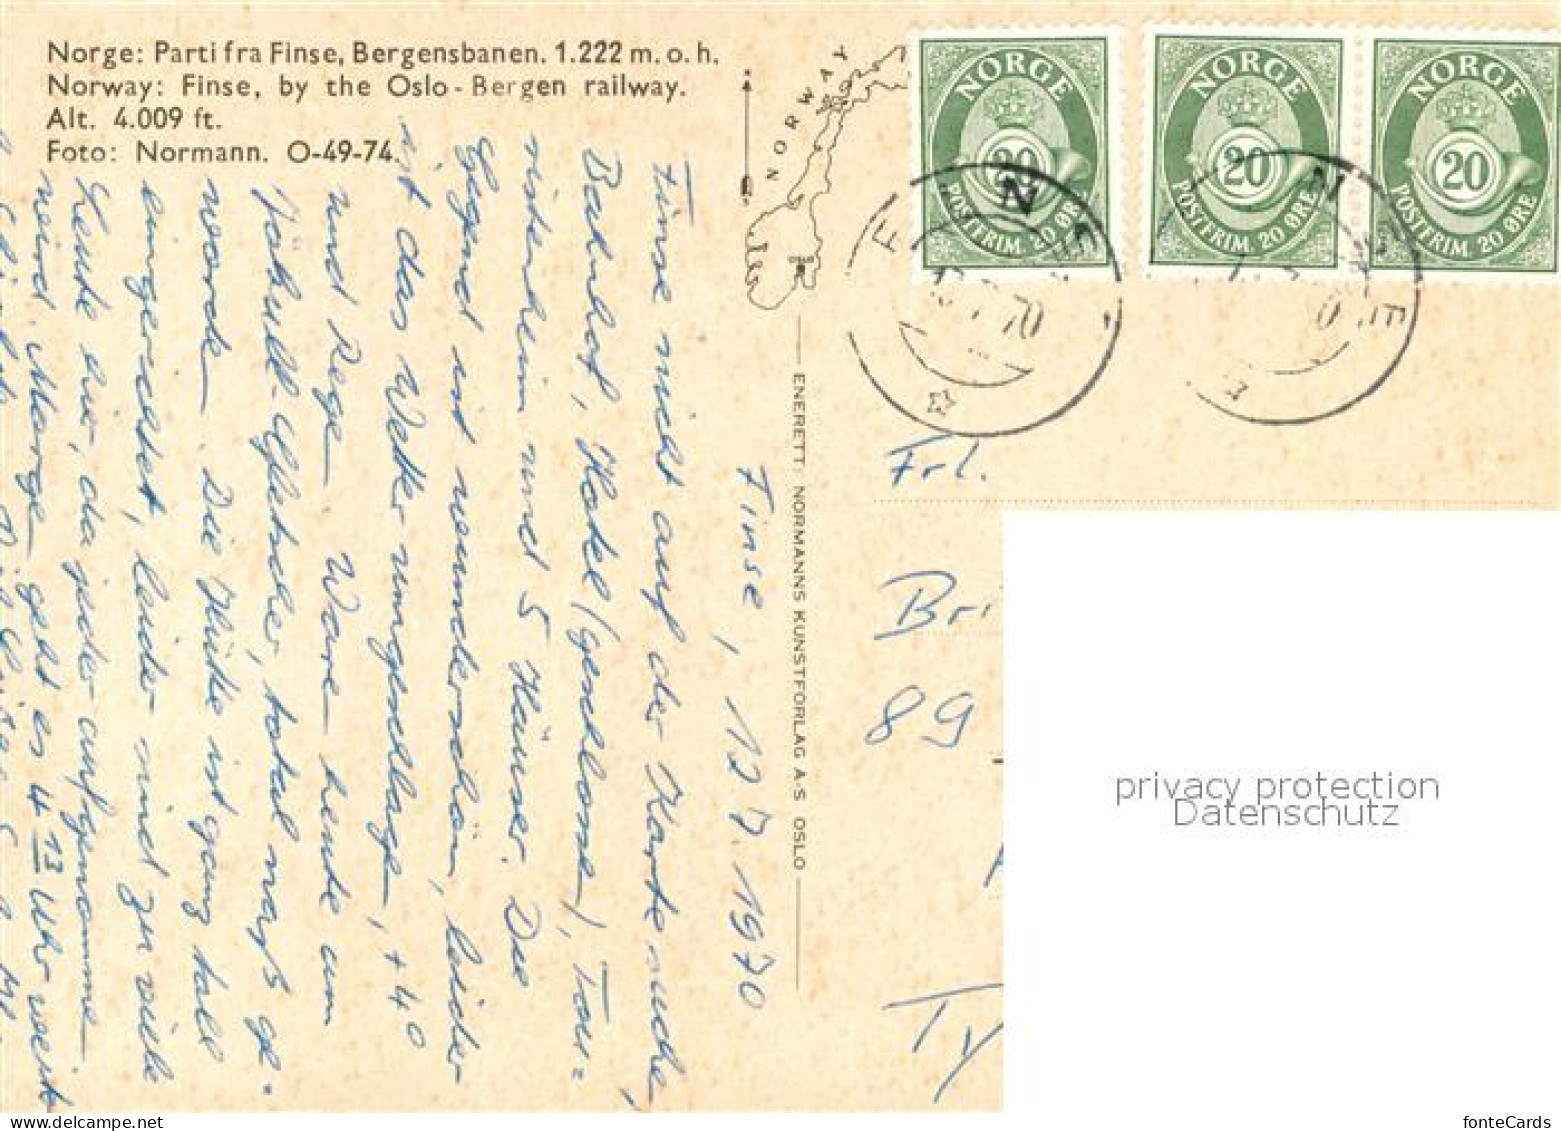 Norge: Parti fra Finse, Bergensbanen. 1.222 m. o. h.
Norway: Finse, by the Oslo - Bergen railway.
Alt. 4.009 ft.
Foto: Normann. O-49-74.
NORWAY
OSLO
NORGE
20
POSTFRIM. 20 ØRE
NORGE
20
POSTFRIM. 20 ØRE
NORGE
20
POSTFRIM. 20 ØRE
ENERETT: NORMANNS KUNSTFORLAG A-S OSLO
Finse, 12.7.1970
Finse nicht auf der Karte suche,
Bahnhof, Hotel (geschlosse), Tou=
ristenheim und 5 Häuser. Die
Gegend ist wunderschön, leider
ist das Wetter umgeschlage, + 4°
und Rege. Ware heute am
Jökull-Gletscher, total naß ge-
worde. Die Hütte ist ganz toll
eingerichtet, leider sind zu viele
Leute hier, da jeder aufgenomme
wird. Morge geht es 4 13 Uhr weite
Frl.
Bri
89
Ty
privacy protection
Datenschutz
fonteCards